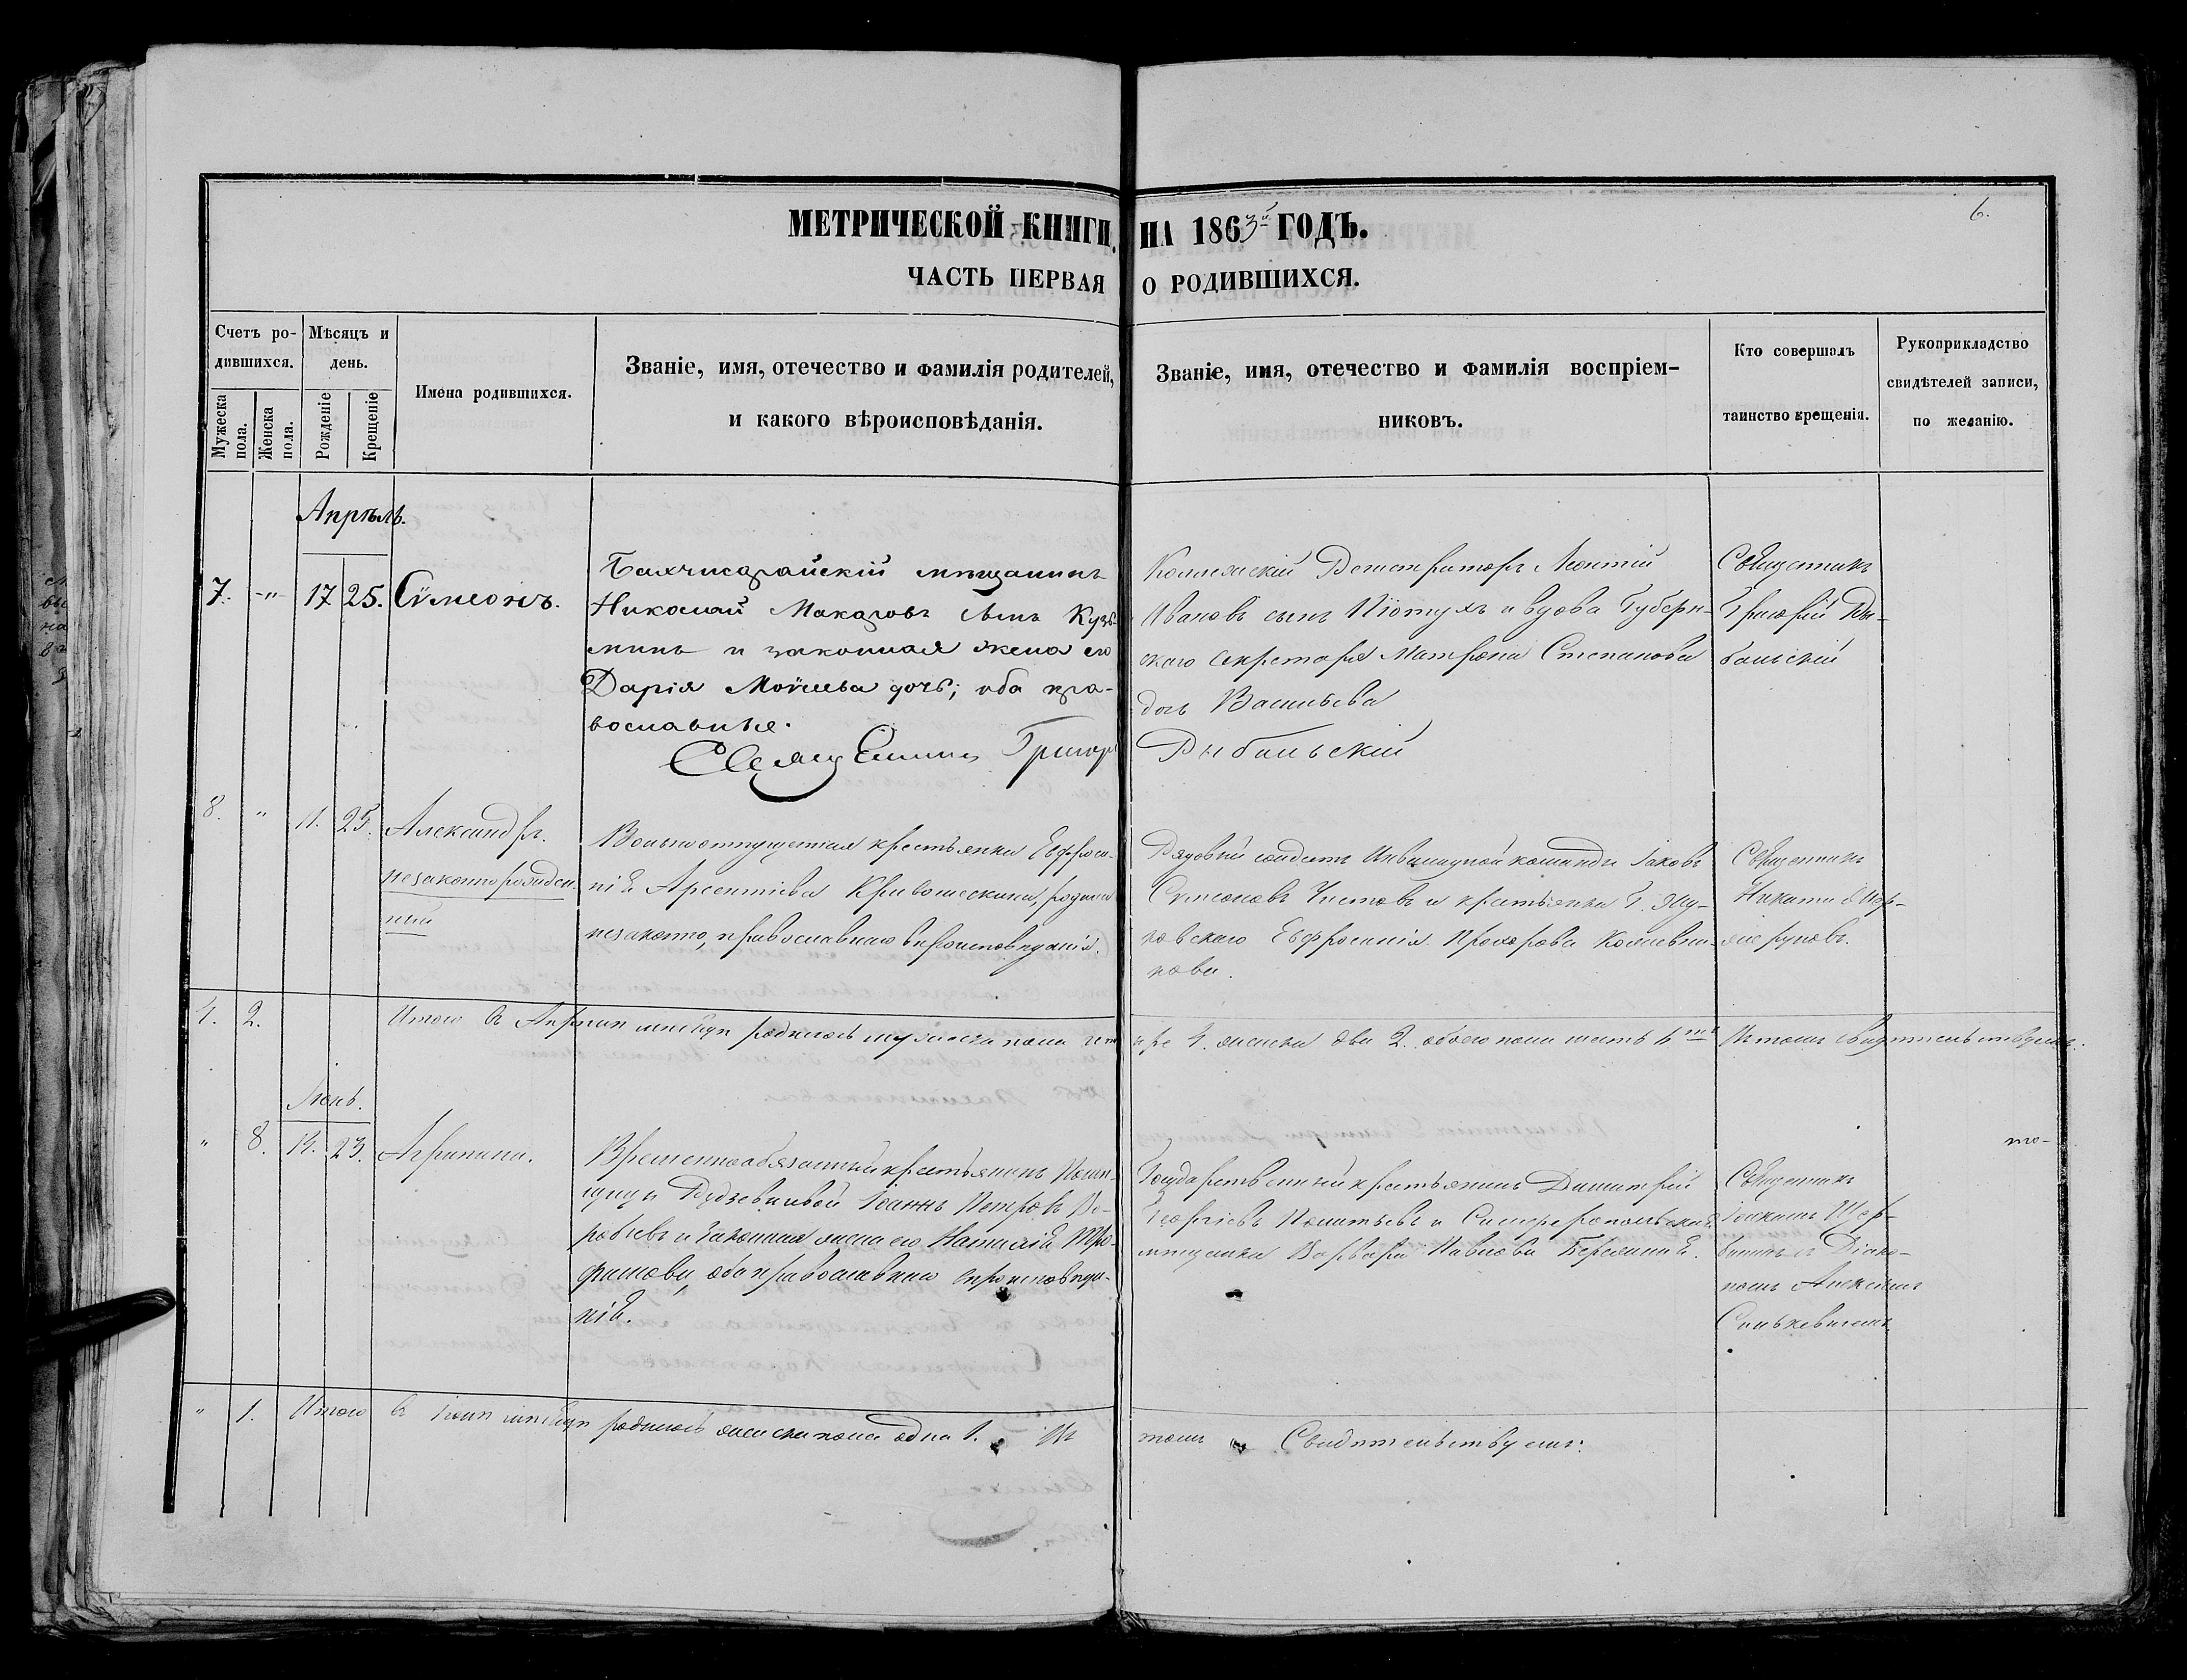 МЕТРИЧЕСКОЙ КНИГИ НА 1863й ГОДЪ.
6.
ЧАСТЬ ПЕРВАЯ О РОДИВШИХСЯ.
Счетъ ро-
дившихся.
Мужеска пола.
Женска пола.
Мѣсяцъ и
день.
Рожденіе
Крещеніе
Имена родившихся.
Званіе, имя, отечество и фамилія родителей,
и какого вѣроисповѣданія.
Званіе, имя, отечество и фамилія воспріем-
никовъ.
Кто совершалъ
таинство крещенія.
Рукоприкладство
свидѣтелей записи,
по желанію.
Апрѣль.
7. -"- 17 25. Сѵмеонъ.
Бахчисарайскій мѣщанинъ
Николай Макаровъ сынъ Кузь-
минъ и законная жена его
Дарія Моисѣева дочь; оба пра-
вославные.
Коллежскій Регистраторъ Леонтій
Ивановъ сынъ и вдова Губерн-
скаго Секретаря Матрона Степанова
дочь Васильева
Священникъ
Григорій Ры-
бальскій
Священникъ Григорій Рыбальскій
8. " 11. 25. Александръ.
незаконнорожден-
ный
Вольноотпущенная крестьянка Евфроси-
нія Арсентіева родила
незаконно, православнаго вѣроисповѣданія.
Рядовый солдатъ Инвалидной команды Іаковъ
Сѵмеоновъ Чистовъ и крестьянка Г. Жу-
ковскаго Евфросинія Прохорова
кова.
Священникъ
Никита
4. 2. Итого въ Апрѣлѣ мѣсяцѣ родилось мужеска пола четыре 4. женска два 2. обоего пола шесть 6ть Въ томъ свидѣтельствуемъ.
Іюнь.
" 8. 13. 23. Агрипина.
Временнообязанный крестьянинъ Помѣ-
щицы Іоаннъ Петровъ Во-
робьевъ и законная жена его Наталія Тро-
фимова, оба православнаго вѣроисповѣда-
нія.
Государственный крестьянинъ Димитрій
Георгіевъ и Симферопольская
мѣщанка Варвара Павлова
Священникъ
Іоакимъ Щер-
бина съ Діако-
номъ Алексѣемъ
Синькевичемъ
то-
" 1. Итого въ Іюнѣ мѣсяцѣ родилось женска пола одна 1. Въ томъ Свидѣтельствуемъ: